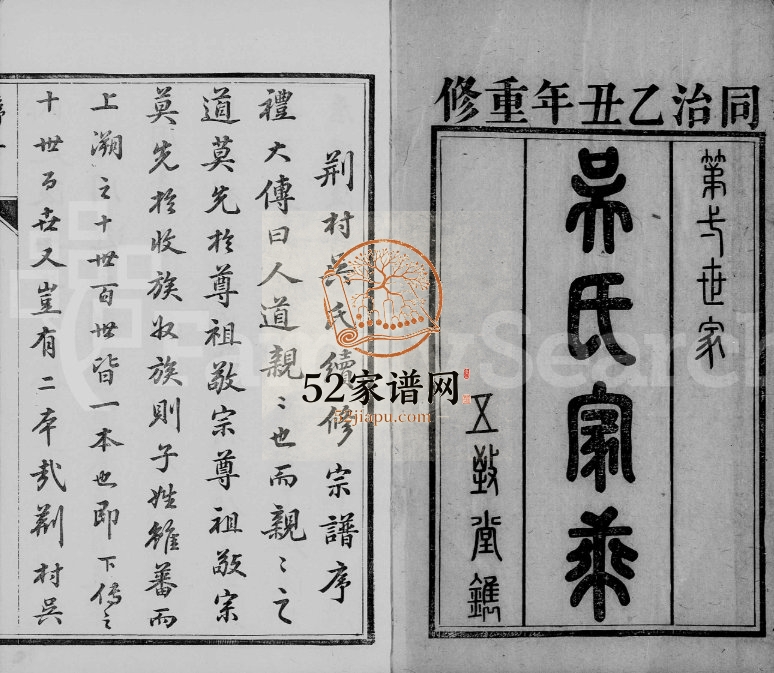 同治乙丑年重修
第一世家
吴氏家乘
五教堂鐫
荆村吳氏續修宗譜序
禮大傳曰人道親〻也而親〻之
道莫先於尊祖敬宗尊祖敬宗
莫先於收族收族則子姓雖蕃而
上溯之十世百世皆一本也即下傳之
十世百世又豈有二本哉荆村吳
52家谱网
52jiapu.com
FamilySearch